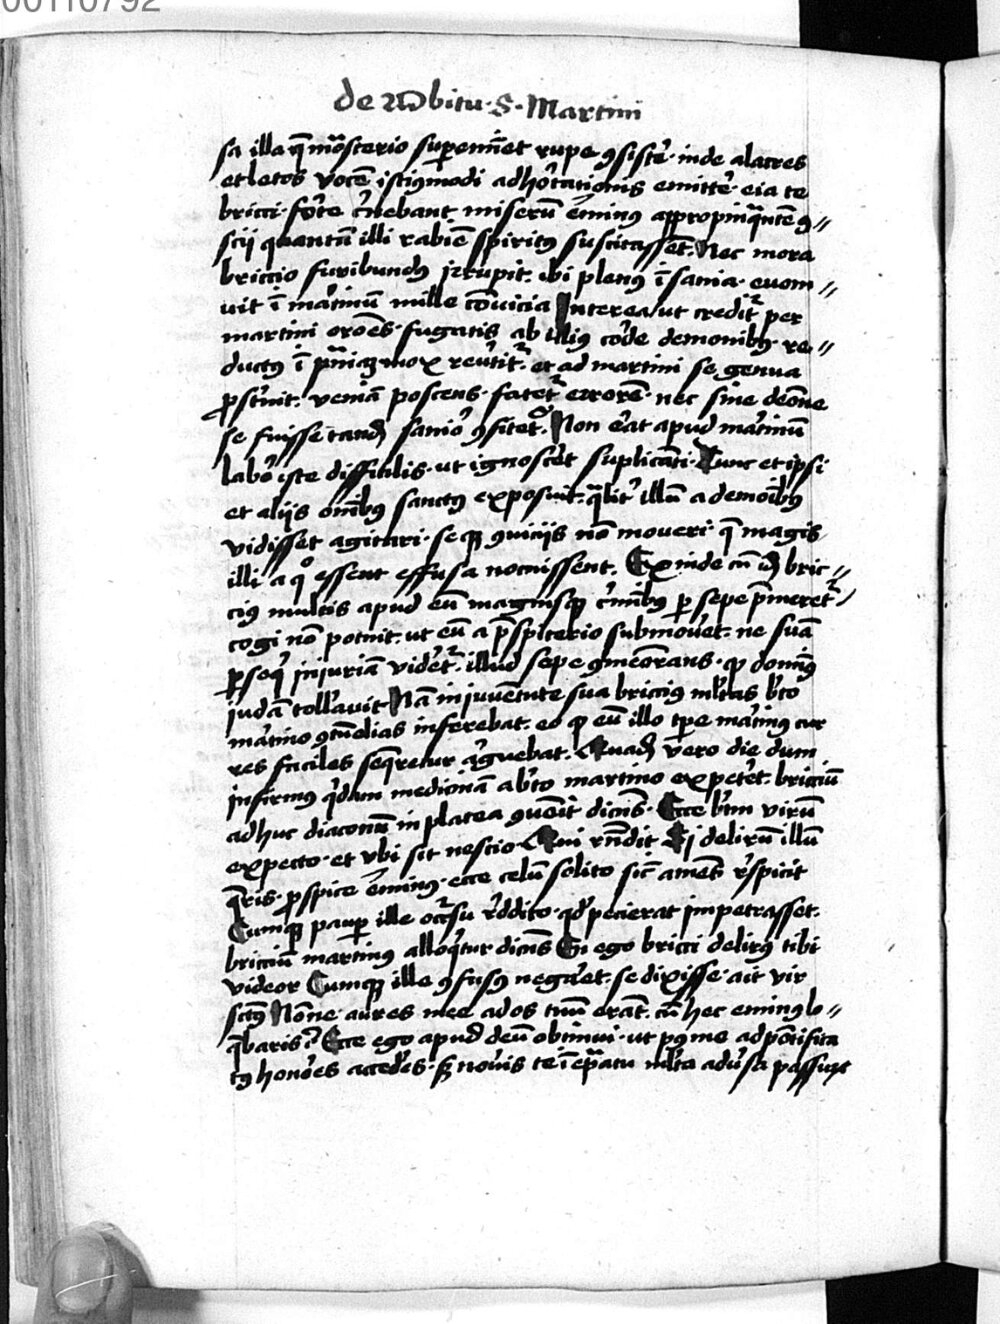 00110792
de Obitu · S · Martini
sa illa q̄ mōsterio suꝑemīet rupe ꝯsistẽ · inde alacres
et letos vocē istiꝯmodi adhortationis emittẽ · eia te
bricci · forte c̾nebant miserū eminꝰ appropinq̄ntē ꝯ//
scii quantū illi rabiē spiritꝰ suscitassēt. Nec mora
briccio furibundꝰ irrupit. ibi plenꝰ ī sania · evom//
uit ī martinū mille cōvicia Interea ut credit᷑ per
martini orōes · fugatis ab illiꝰ corde demonibꝰ · re//
ductꝰ ī p̄niāꝫ mox reu̾tit᷑. et ad martini se genua
ꝓstrauit. veniā poscens · fatet᷑ errorē · nec sine demōe
se fuisse tandē sanior ꝯfitet᷑. Non erat apud martinū
labor iste difficilis · ut ignoscet suplicāti. Tunc et ipsi
et aliis oīnibꝰ sanctꝰ exposuit. q̄lit̾ illū a demoībꝰ
vidisset agitari · seqꝫ ꝯviciis nō moveri · q̄ magis
illi a qͦ essent effusa nocuissent. Exinde cū id bric//
ciꝰ multis apud eū magnisqꝫ c̾minibꝰ ꝑsepe p̄meret᷑
cogi nō potuit. ut eū a p̄spiterio submoveret. ne suā
ꝑseq̾ injuriā videret᷑. illud sepe ꝯmeōrans · ꝙ dominꝰ
judā tollavit Nā in juventute sua briccius mltas bt̄o
martino ꝯtūelias inferebat. eo ꝙ eū illo tp̄e martinꝰ cur
res faciles seq̄retur arguebat. Quadā vero die dum
infirmus q̾dam medicinā a bt̄o martino expetet. bricciū
adhuc diaconū in platea ꝯvēit dicēs · Ecce bt̄m virū
expecto · et vbi sit nescio. Qui rn̄dit Si delirū illū
q̄ris · ꝓspice eminꝰ · ecce celū solito sic̄ amens r̾spicit
Cumqꝫ pauꝑ ille occ̾su r̾ddito · qd̾ pecierat impetrasset.
bricciū martinus alloq̾tur dicēs En ego bricci delirꝰ tibi
videor Cumqꝫ ille ꝯfusꝰ negaret · se dixisse · ait vir
sctꝰ Nōne aures mee ad os tuū erāt. cū hec eminꝰ lo//
q̄baris? Ecce ego apud deū obtinui · ut pꝰ me ad pōtifica
tꝰ honores accedes · sꝫ noveris te ī ep̄atu mlta adu̾sa passurū